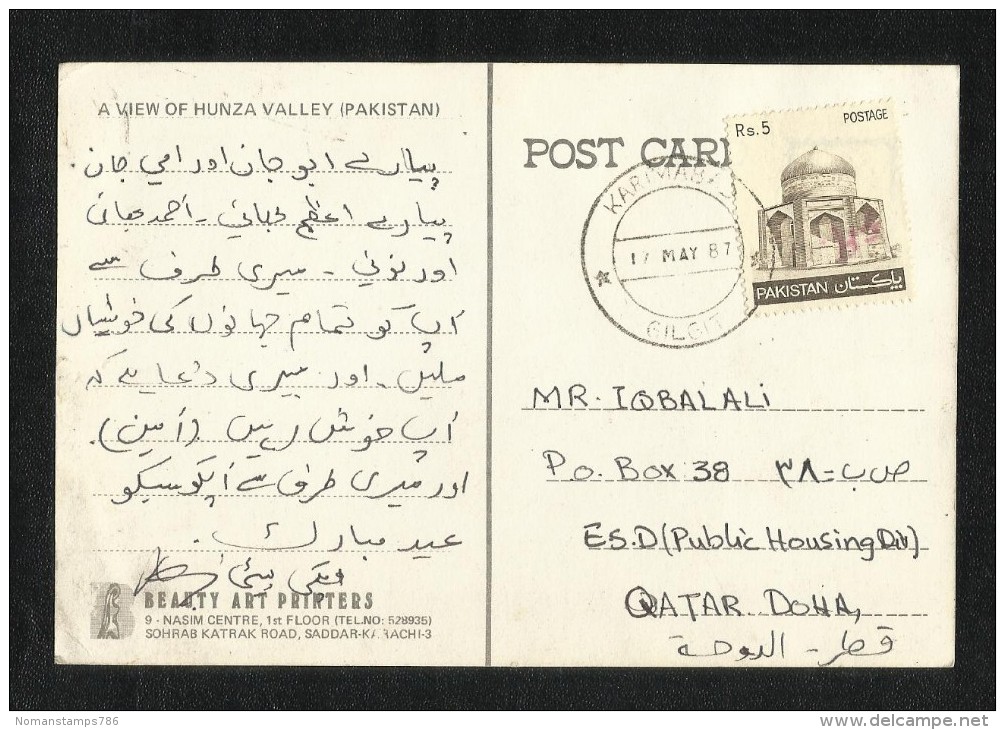 A VIEW OF HUNZA VALLEY (PAKISTAN)
پیارے ابو جان اور امی جان.
پیارے اعظم بھائی - احمد بھائی
اور ٹونی - میری طرف سے
آپ کو تمام جہانوں کی خوشیاں
ملیں - اور میری دعا ہے کہ
آپ خوش رہیں (آمین).
اور میری طرف سے آپکو سبکو
عید مبارک.
BEAUTY ART PRINTERS
9 - NASIM CENTRE, 1st FLOOR (TEL.NO: 528935)
SOHRAB KATRAK ROAD, SADDAR-KARACHI-3
POST CARD
Rs. 5 POSTAGE
PAKISTAN پاکستان
KARIMABAD
17 MAY 87
GILGIT
MR. IQBAL ALI
P.O. BOX 38 ص ب = ٣٨
ES.D (Public Housing Div)
QATAR DOHA,
قطر - الدوحة
Nomanstamps786
delcampe.net